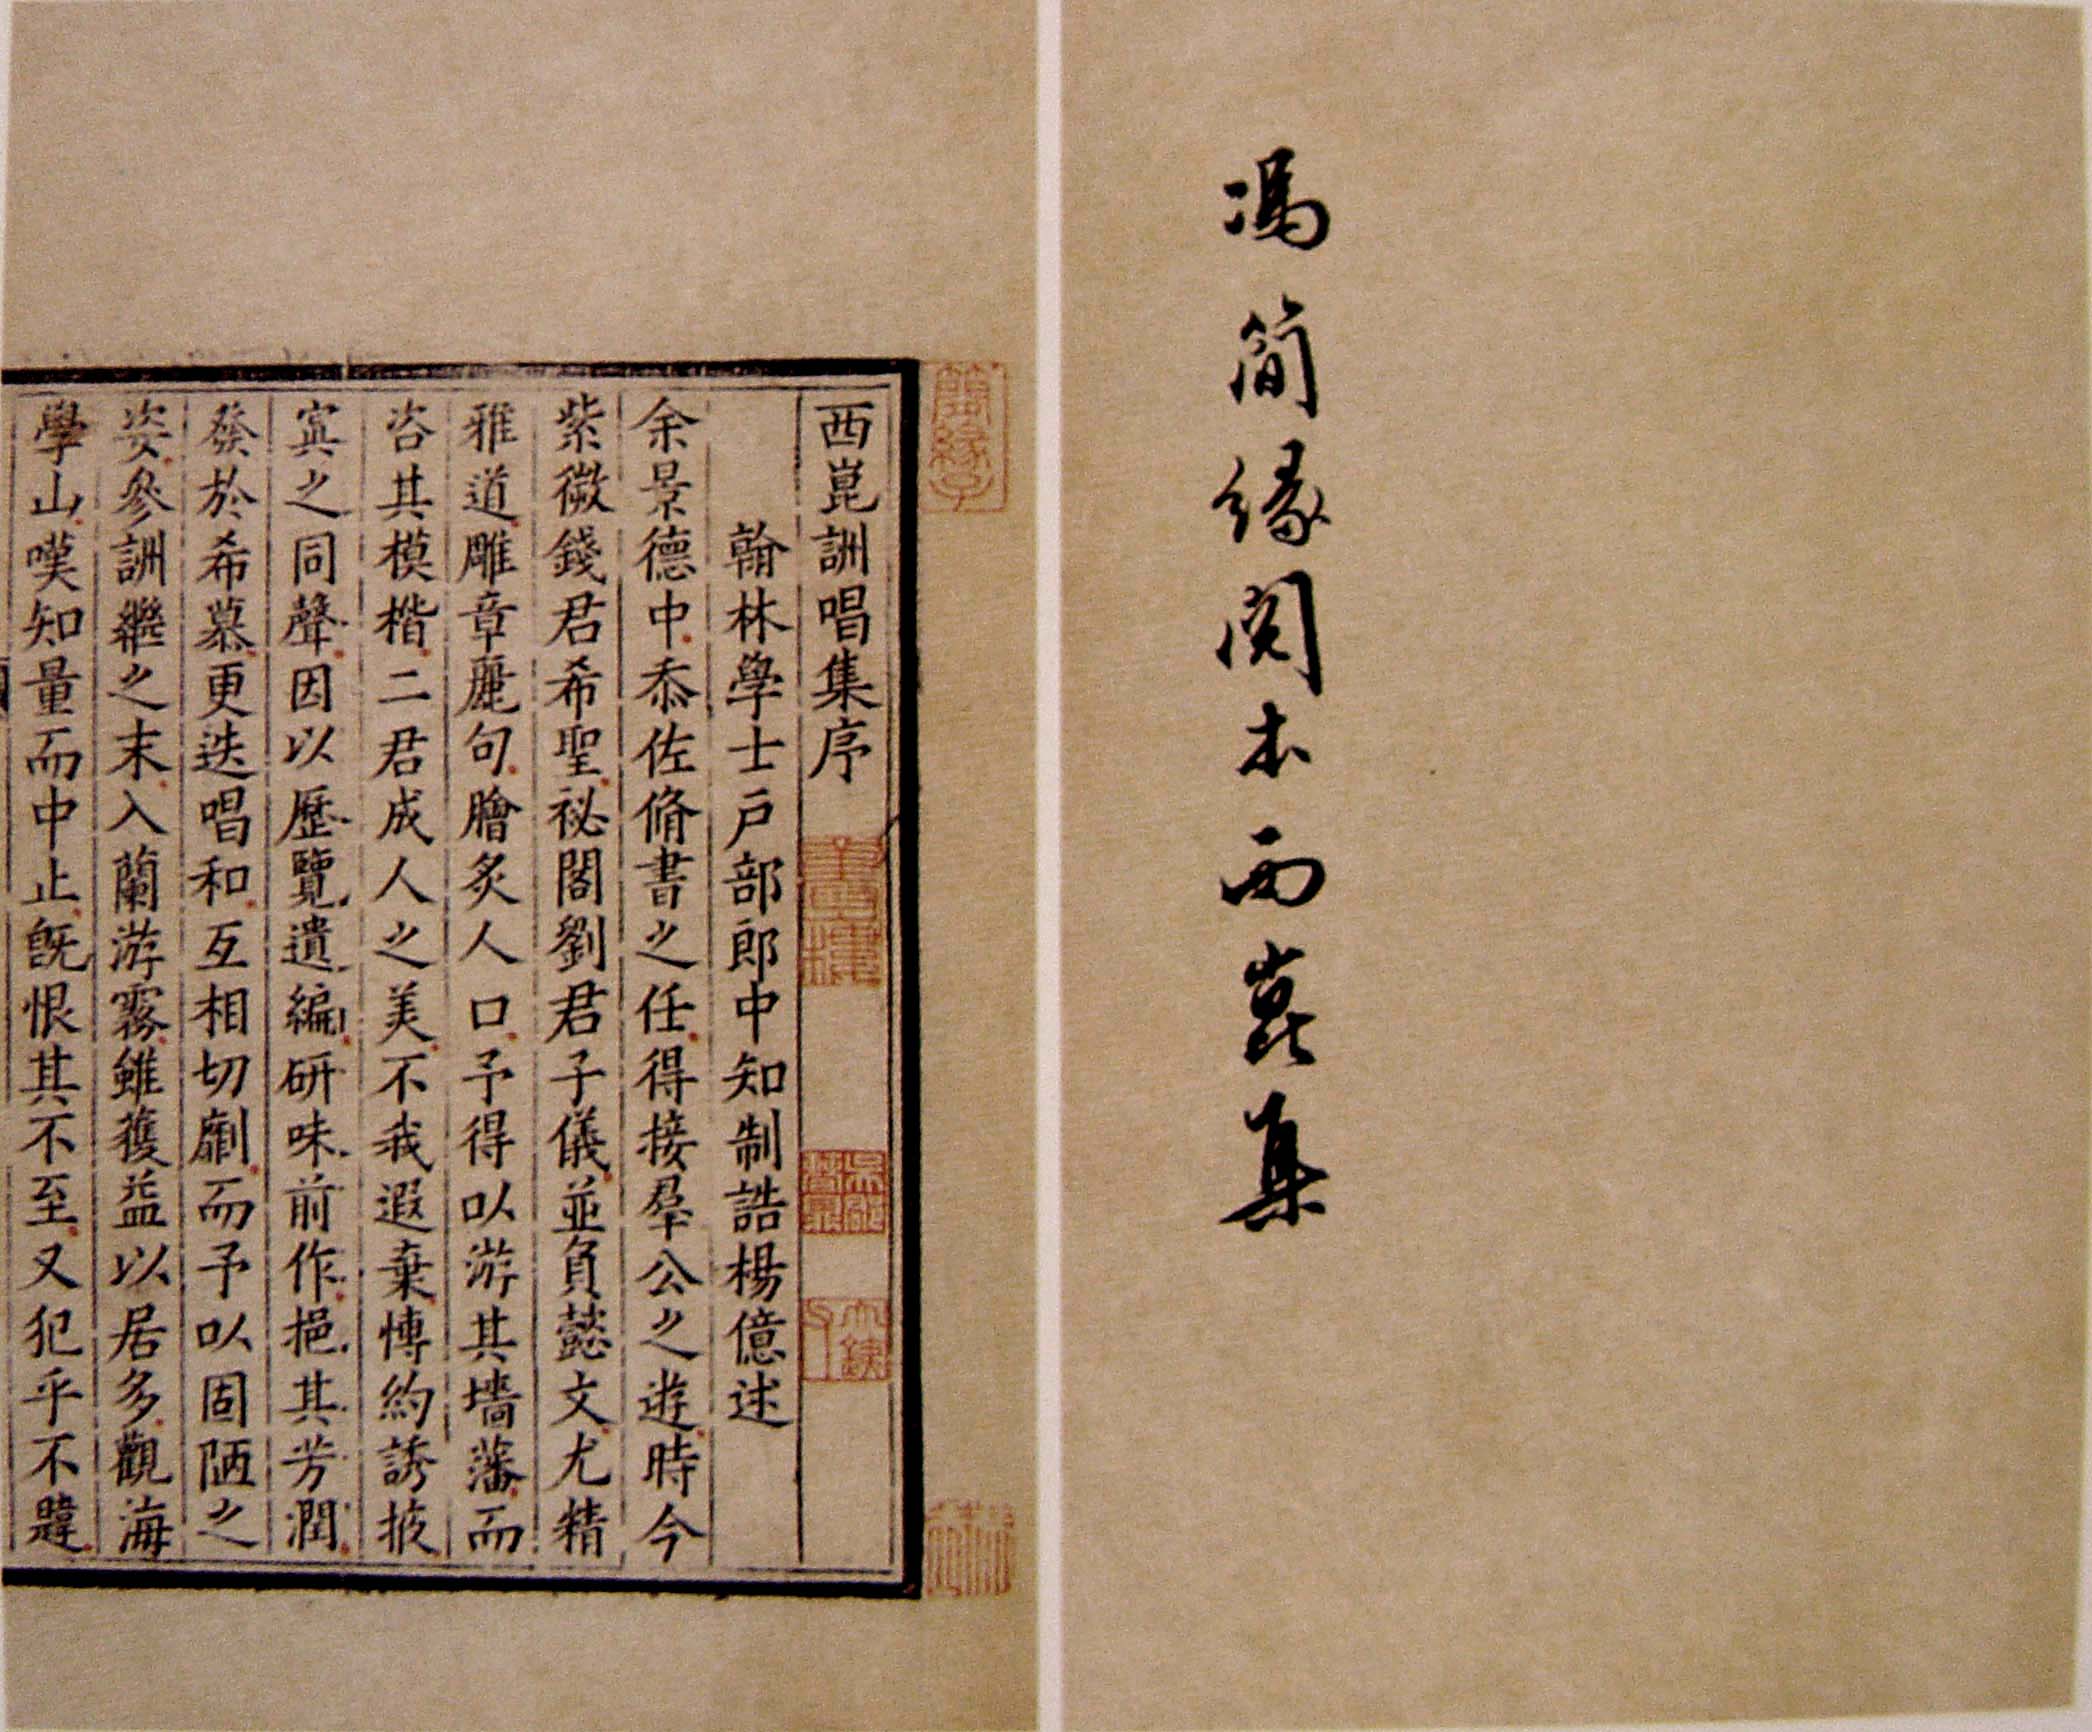 馮簡縁閱本西崑集
西崑詶唱集序
翰林學士戶部郎中知制誥楊億述
余景德中忝佐脩書之任得接羣公之遊時今
紫微錢君希聖祕閣劉君子儀並負懿文尤精
雅道雕章麗句膾炙人口予得以游其墻藩而
咨其模楷二君成人之美不我遐棄博約誘掖
寘之同聲因以歷覽遺編研味前作挹其芳潤
發於希慕更迭唱和互相切劘而予以固陋之
姿參詶繼之末入蘭游霧雖獲益以居多觀海
學山嘆知量而中止旣恨其不至又犯乎不韙
簡緣子